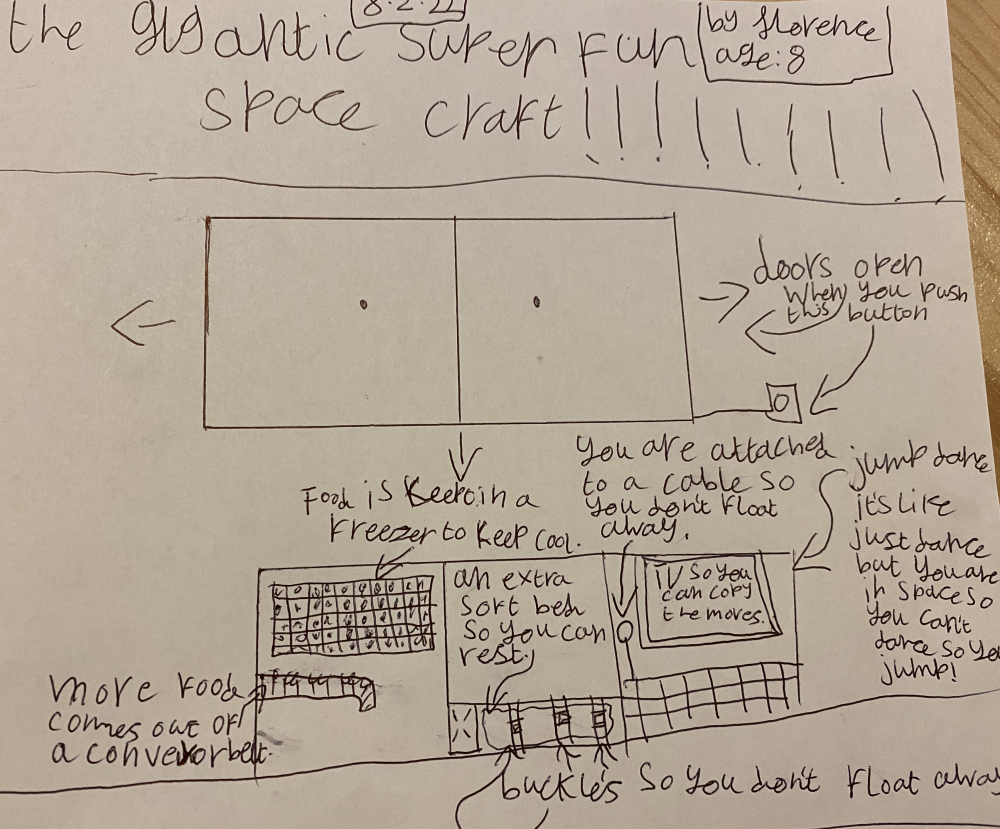 8.2.22
the gigantic super fun
by florence
age:8
space craft!!!!!!!!!
doors open
when you push
this button
Food is keept in a
freezer to keep cool.
you are attached
to a cable so
you don't float
away.
jump dance
it's like
just dance
but you are
in space so
you can't
dance so you
jump!
an extra
sort bed
so you can
rest.
TV so you
can copy
the moves.
more food
comes out of
a conveyorbelt.
buckle's so you don't float away